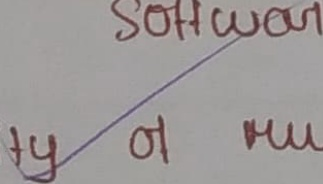 Softwar
ty of